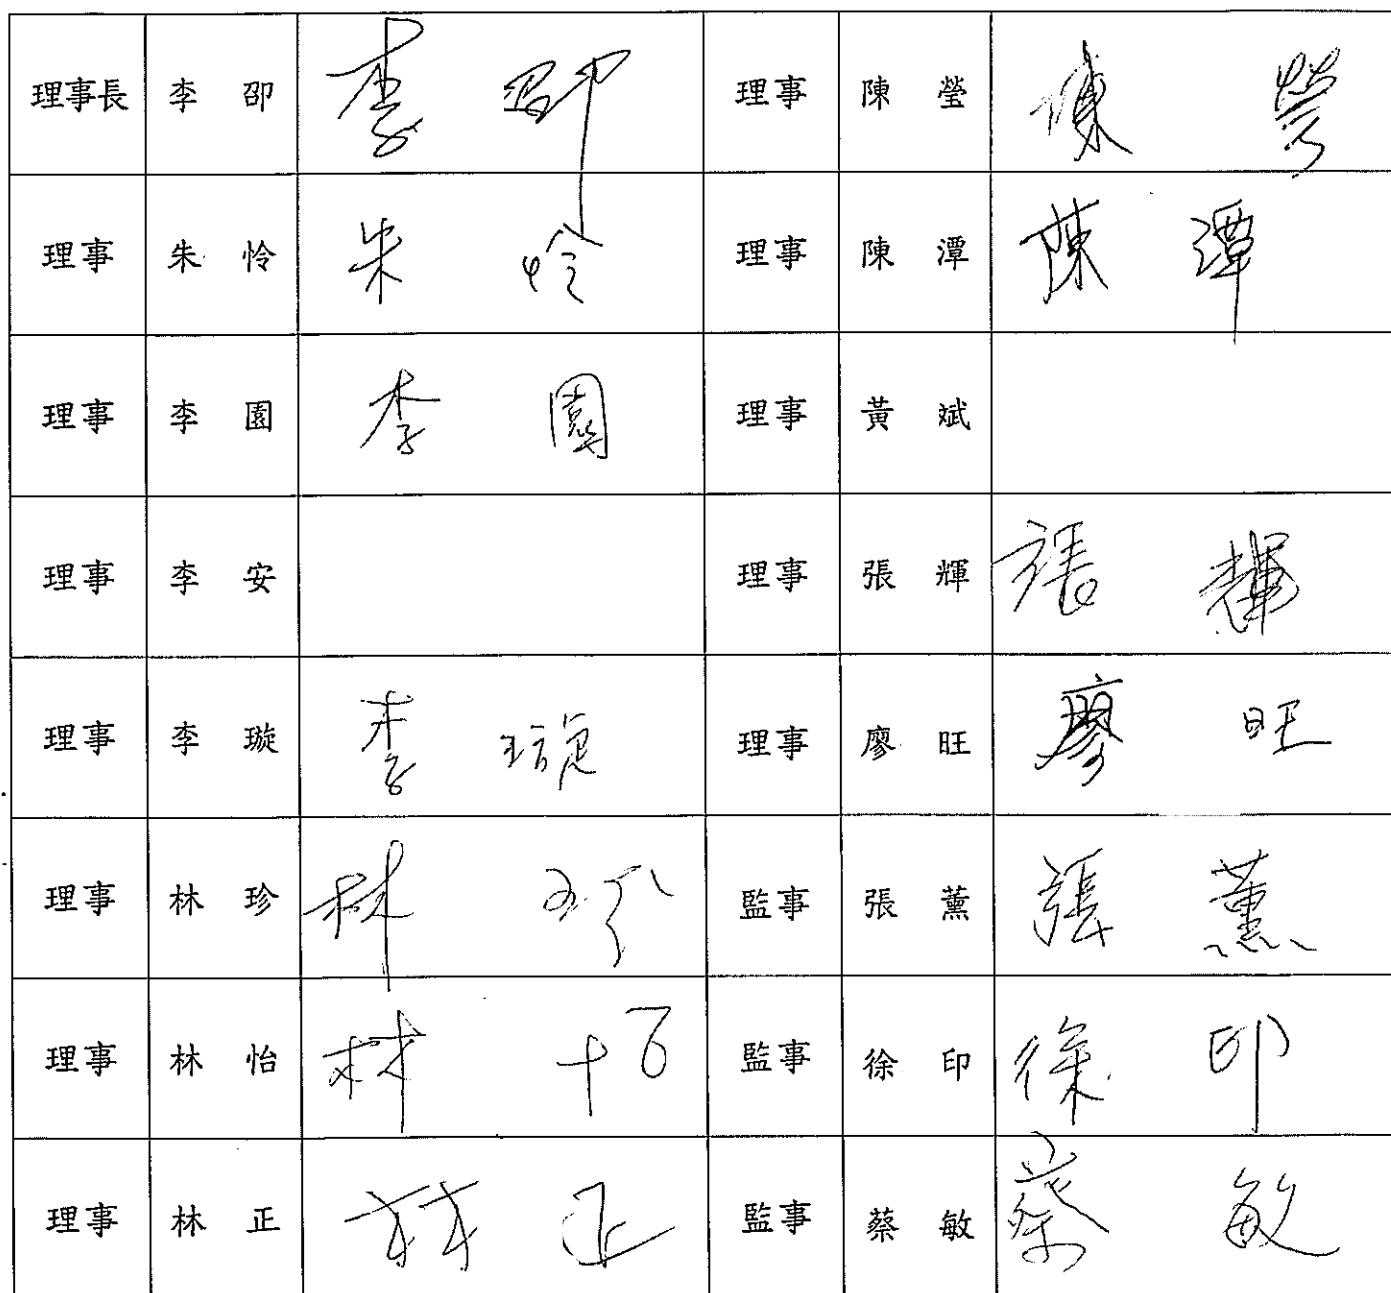 理事長 李 邵 李 邵 理事 陳 瑩 陳 瑩
理事 朱 怜 朱 怜 理事 陳 潭 陳 潭
理事 李 園 李 園 理事 黃 斌
理事 李 安 理事 張 輝 張 輝
理事 李 璇 李 璇 理事 廖 旺 廖 旺
理事 林 珍 林 珍 監事 張 薰 張 薰
理事 林 怡 林 怡 監事 徐 印 徐 印
理事 林 正 林 正 監事 蔡 敏 蔡 敏